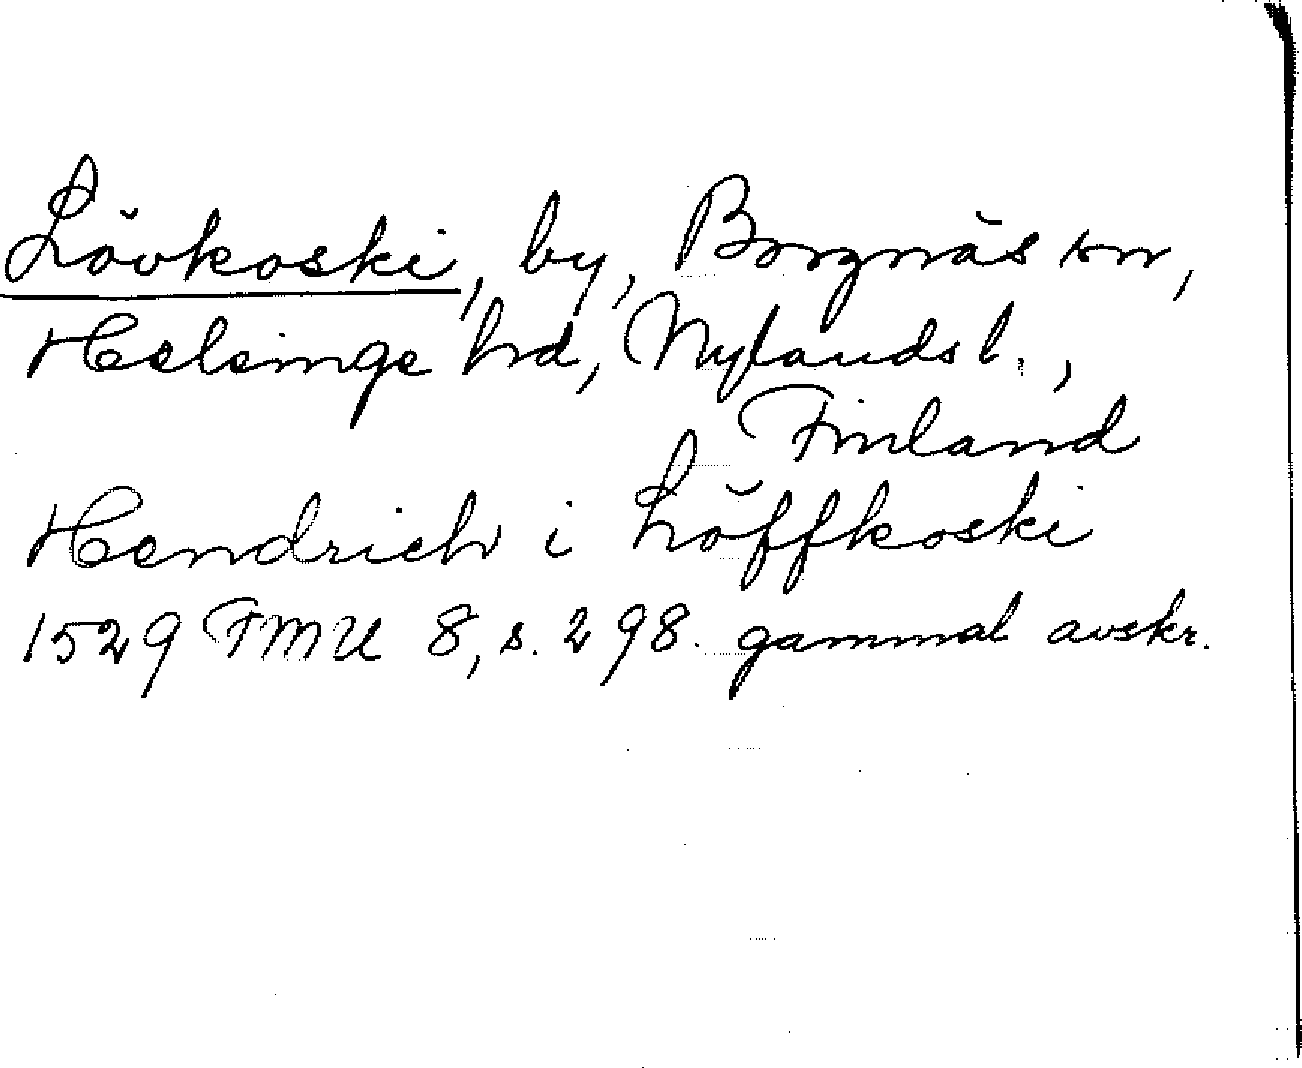 Lövkoski, by, Borgnäs sn,
Helsinge hd, Nylands l.,
Finland
Hendrich i Löffkoski
1529 FMU 8, s. 298. gammal avskr.